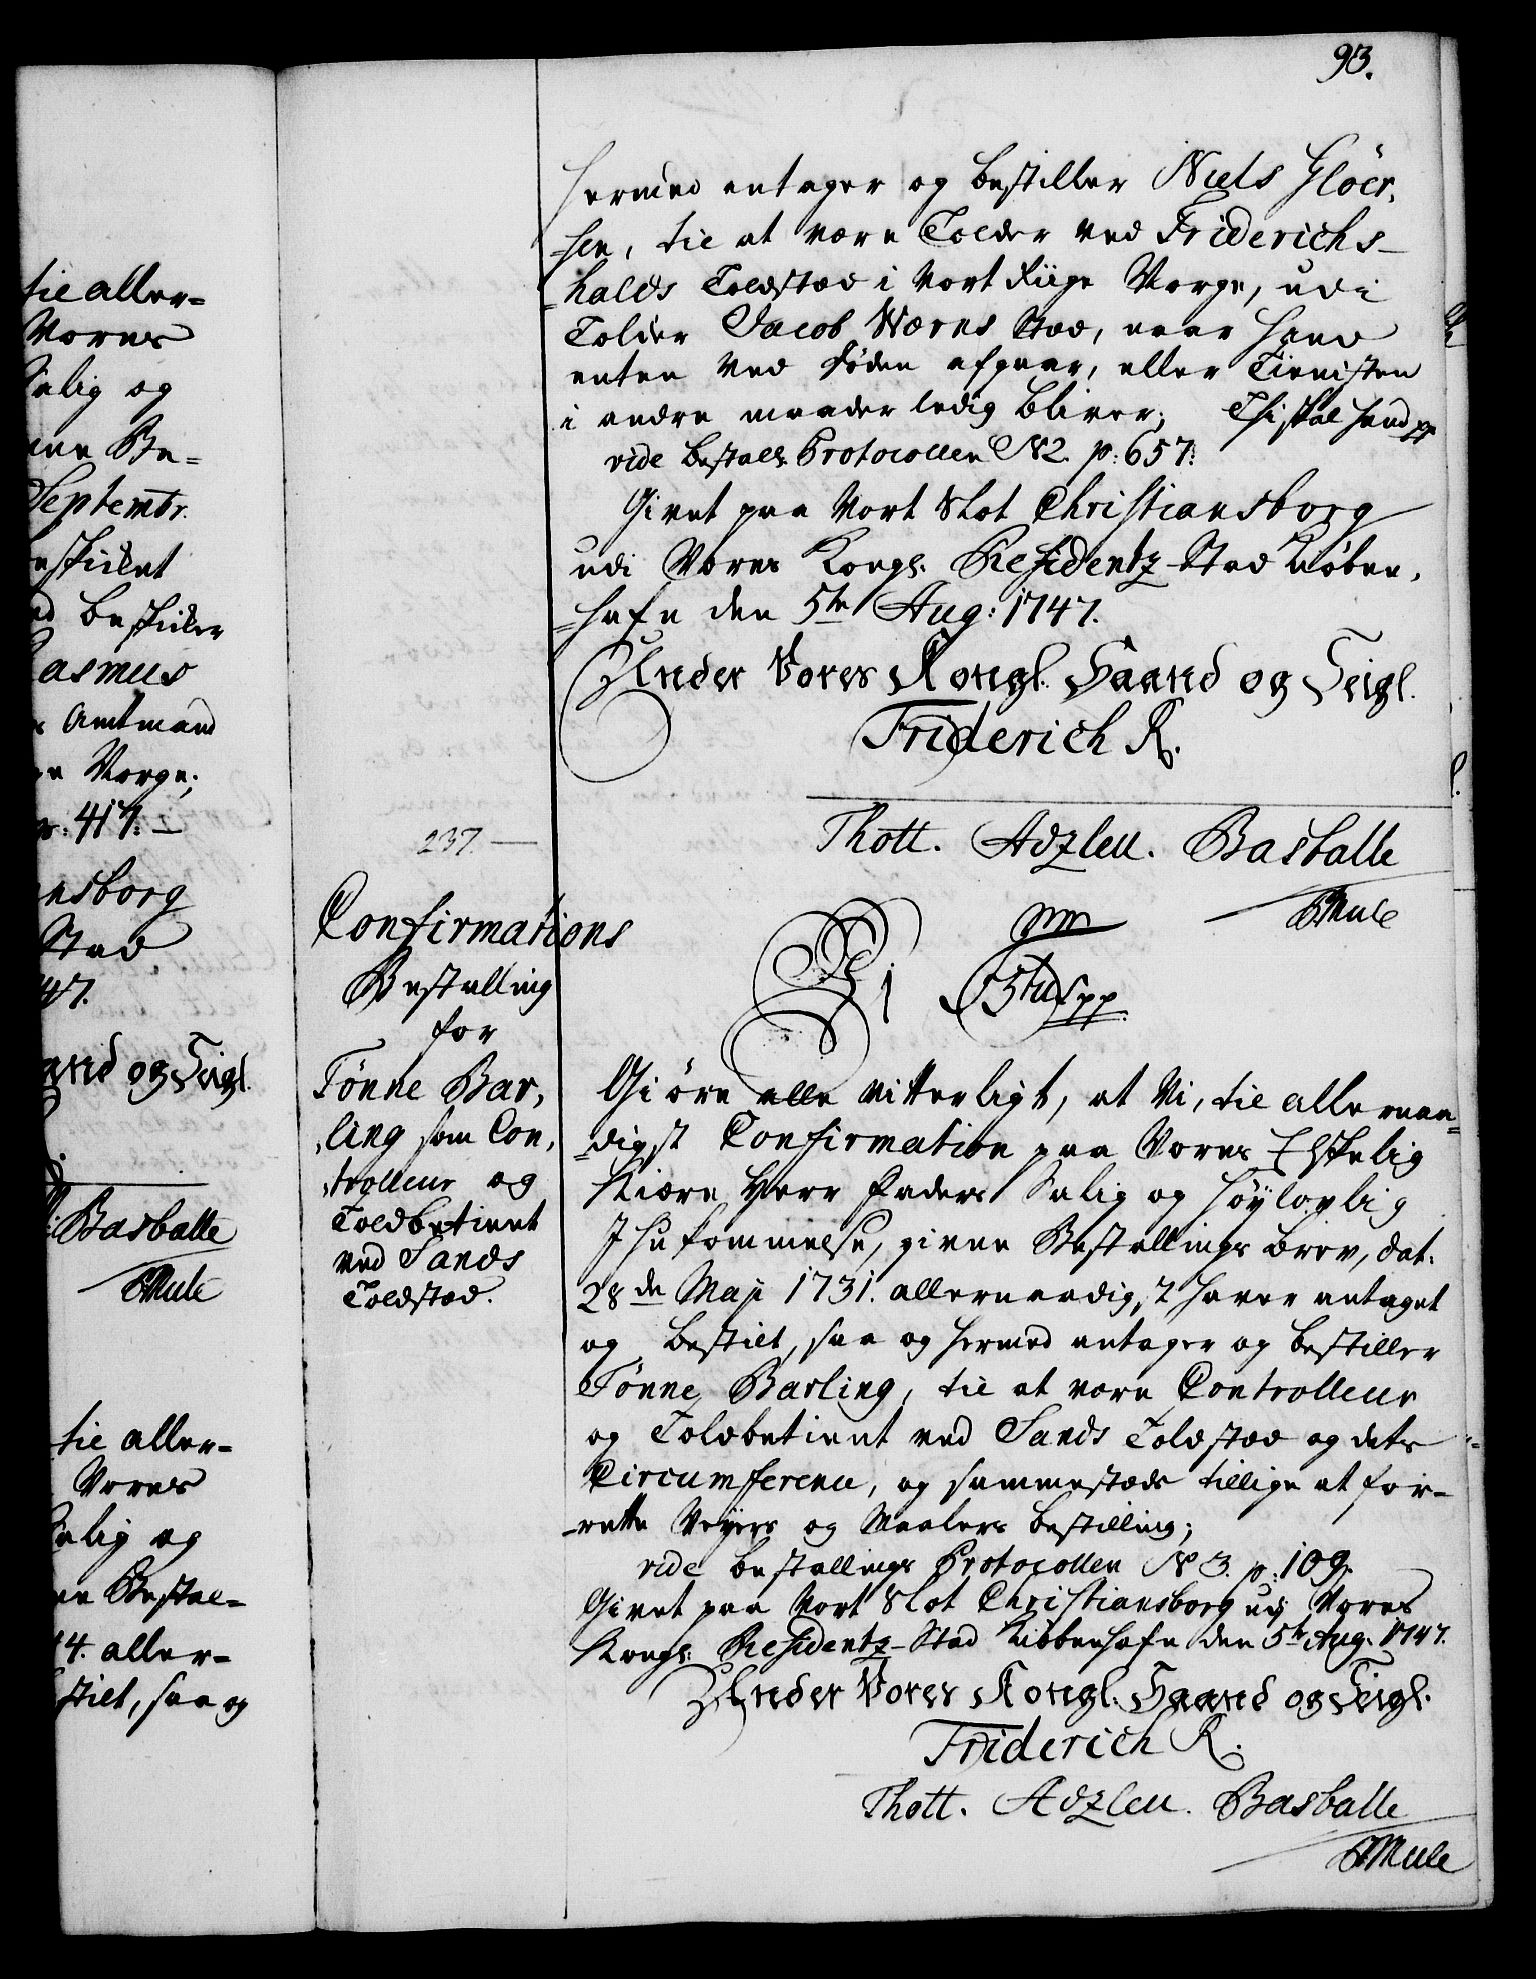 93.
hermed antager og bestiller Niels Glöer,
-sen, til at være Tolder ved Friderichs-
-halds Toldstæd i Vort Riige Norge, udi
Tolder Jacob Wærns Stæd, naar hand
enten ved Døden afgaar, eller Tienisten
i andre maader ledig bliver; Thi skal hand pp
vide Bestall: Protocollen N 2. p: 657:
Givet paa Vort Slot Christiansborg
udi Vores Kongl: Residentz-Stad Kiöben,
=hafn den 5te Aug: 1747.
Under Vores Kongl. Haand og Seigl.
Friderich R.
Thott. Adzleu. Basballe
Mule
237. —
Confirmations
Bestalling
for
Tönne Bar,
,ling som Con,
,trolleur og
Toldbetient
ved Sands
Toldstæd.
Vi
5tus pp.
Giöre alle vitterligt, at Vi, til allernaa=
=digst Confirmation paa Vores Elskelig
Kiære Herr Faders Salig og Höylovlig
Ihukommelse, givne Bestallings Brev, dat:
28de Maji 1731. allernaadigst haver antaget
og bestilt, saa og hermed antager og bestiller
Tönne Barling, til at være Controlleur
og Toldbetient ved Sands Toldstæd og dets
Circumference, og sammestæds tillige at for-
-rette Veyers og Maalers bestilling;
vide bestallings Protocollen N 3. p: 109.
Givet paa Vort Slot Christiansborg udj Vores
Kongl: Residentz-Stad Kiöbenhafn den 5te Aug: 1747.
Under Vores Kongl. Haand og Seigl.
Friderich R.
Thott. Adzleu. Basballe
Mule
til aller=
Vores
Salig og
Septembr.
bestiller
Rasmus
Amtmand
Norge;
417: —
Stad
47.
og Seigl.
Basballe
Mule
til aller=
Vores
Salig og
Bestal=
aller=
saa og